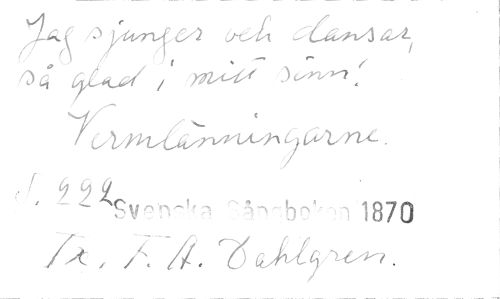 Jag sjunger och dansar,
så glad i mitt sinn!
Vermlänningarne.
S. 222 Svenska Sångboken 1870
Tx. F. A. Dahlgren.